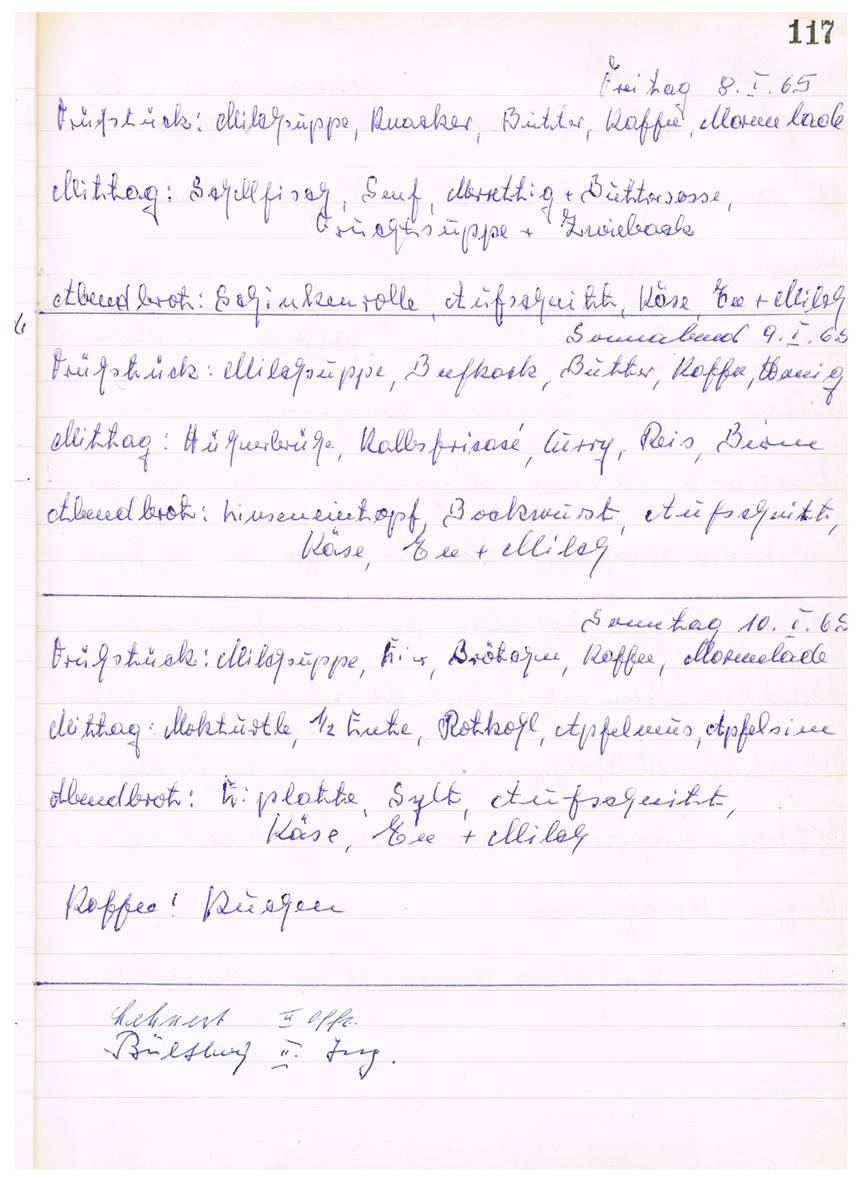 117
Freitag 8. I. 65
Frühstück: Milchsuppe, Knacker, Butter, Kaffee, Marmelade
Mittag: Schellfisch, Senf, Merettig + Buttersosse,
Fruchtsuppe + Zwieback
Abendbrot: Schinkenrolle, Aufschnitt, Käse, Tee + Milch
Sonnabend 9. I. 65
Frühstück: Milchsuppe, Beefhack, Butter, Kaffee, Honig
Mittag: Hühnerbrühe, Kalbsfricasé, Curry, Reis, Birne
Abendbrot: Linseneintopf, Bockwurst, Aufschnitt,
Käse, Tee + Milch
Sonntag 10. I. 65
Frühstück: Milchsuppe, Eier, Brötchen, Kaffee, Marmelade
Mittag: Mokturtle, 1/2 Ente, Rotkohl, Apfelmus, Apfelsine
Abendbrot: Eiplatte, Sylt, Aufschnitt,
Käse, Tee + Milch
Kaffee: Kuchen
Lehnert II Offz.
II. Ing.